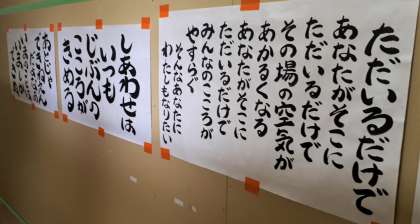 ただいるだけで
あなたがそこに
ただいるだけで
その場の空気が
あかるくなる
あなたがそこに
ただいるだけで
みんなのこころが
やすらぐ
そんなあなたに
わたしもなりたい
しあわせは
いつも
じぶんの
こころが
きめる
あとじゃ
できねんだ